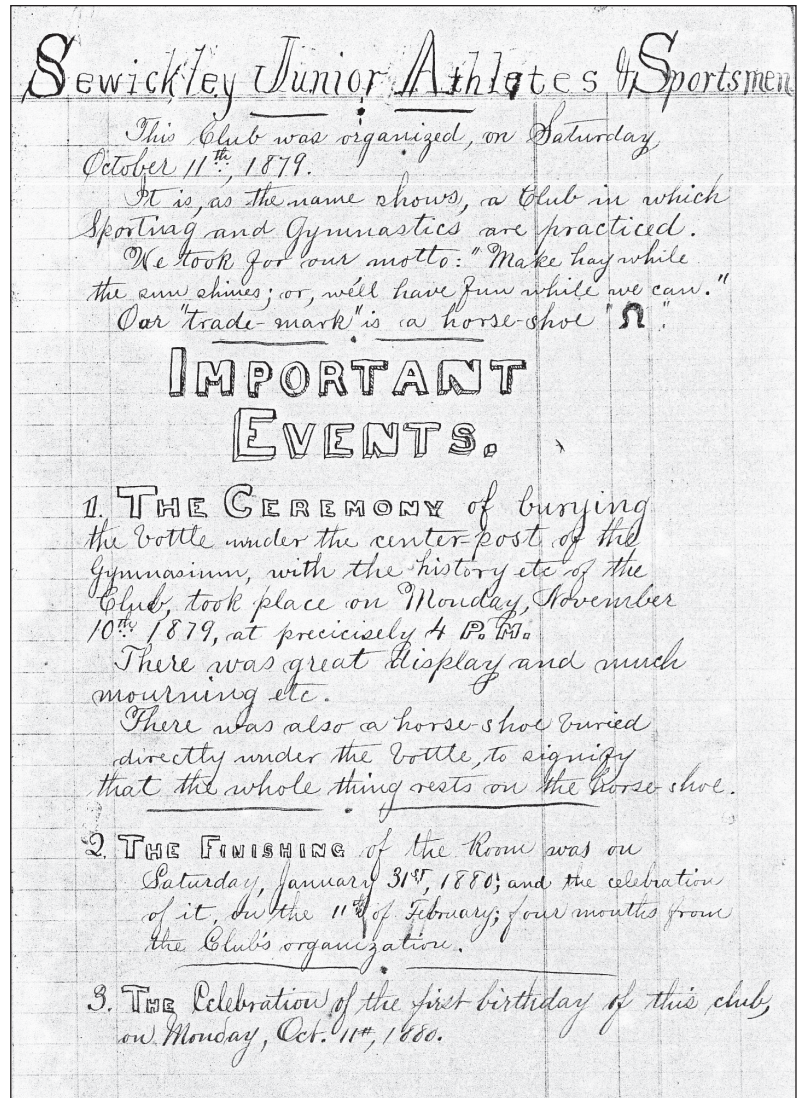 Sewickley Junior Athletes & Sportsmen
This Club was organized, on Saturday,
October 11th, 1879.
It is, as the name shows, a Club in which
Sporting and Gymnastics are practiced.
We took for our motto: "Make hay while
the sun shines; or, we'll have fun while we can."
Our "trade-mark" is a horse-shoe "Ω".
IMPORTANT
EVENTS.
1. THE CEREMONY of burying
the bottle under the center-post of the
Gymnasium, with the history etc of the
Club, took place on Monday, November
10th 1879, at precicisely 4 P.M.
There was great display and much
mourning etc.
There was also a horse-shoe buried
directly under the bottle, to signify
that the whole thing rests on the horse-shoe.
2. THE FINISHING of the Room was on
Saturday, January 31st, 1880; and the celebration
of it, on the 11th of February; four months from
the Club's organization.
3. THE Celebration of the first birthday of this club,
on Monday, Oct. 11th, 1880.